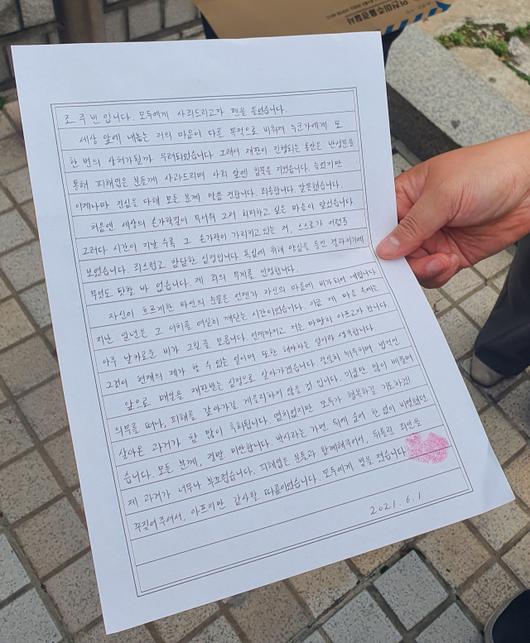 조주빈입니다. 모두에게 사죄드리고자 펜을 들었습니다.
세상 앞에 내놓는 저의 마음이 다른 목적으로 비춰져 누군가에게 또
한 번의 상처가될까 우려되었습니다. 그래서 재판이 진행되는 동안은 반성문을
통해 피해입은 분들께 사과드리며 사회 앞엔 침묵을 지켰습니다. 늦었지만
이제나마 진심을 다해 모든 분께 말씀 전합니다. 죄송합니다. 잘못했습니다.
처음엔 세상의 손가락질이 무서워 그저 회피하고 싶은 마음이 앞섰습니다.
그러다 시간이 지날 수록 그 손가락이 가리키고있는 저, 스스로가 어렴풋
보였습니다. 죄스럽고 참담한 심정입니다. 욕심에 취해 양심을 등진 결과이기에
무엇도 탓할 바 없습니다. 제 죄의 무게를 인정합니다.
자신이 흐르게한 타인의 눈물은 언젠가 자신의 마음에 비가되어 내립니다.
지난 일년은 그 이치를 여실히 깨닫는 시간이었습니다. 지금 제 마음 속에는
아주 날카로운 비가 그칠 줄 모릅니다. 언제까지고 저는 마땅히 아프고자 합니다.
그것이 현재의 제가 할 수 있는 일이며 또한 해야하는 일이라 생각합니다.
앞으로 매일을 재판받는 심정으로 살아가겠습니다. 성실히 뉘우치며 법적인
의무를 떠나, 피해를 갚아가길 게을리하지 않을 겁니다. 미움만 많이 베푸며
살아온 과거가 참 많이 후회됩니다. 염치없지만 모두가 행복하길 기도하겠
습니다. 모든 분께, 정말 미안합니다. 박사라는 가면 뒤에 숨어 한 없이 비열했던
제 과거가 너무나 부끄럽습니다. 피해입은 분들과 함께해주어서, 뒤틀린 죄인을
꾸짖어주어서, 아프지만 감사할 따름이었습니다. 모두에게 빚을 졌습니다.
2021. 6. 1